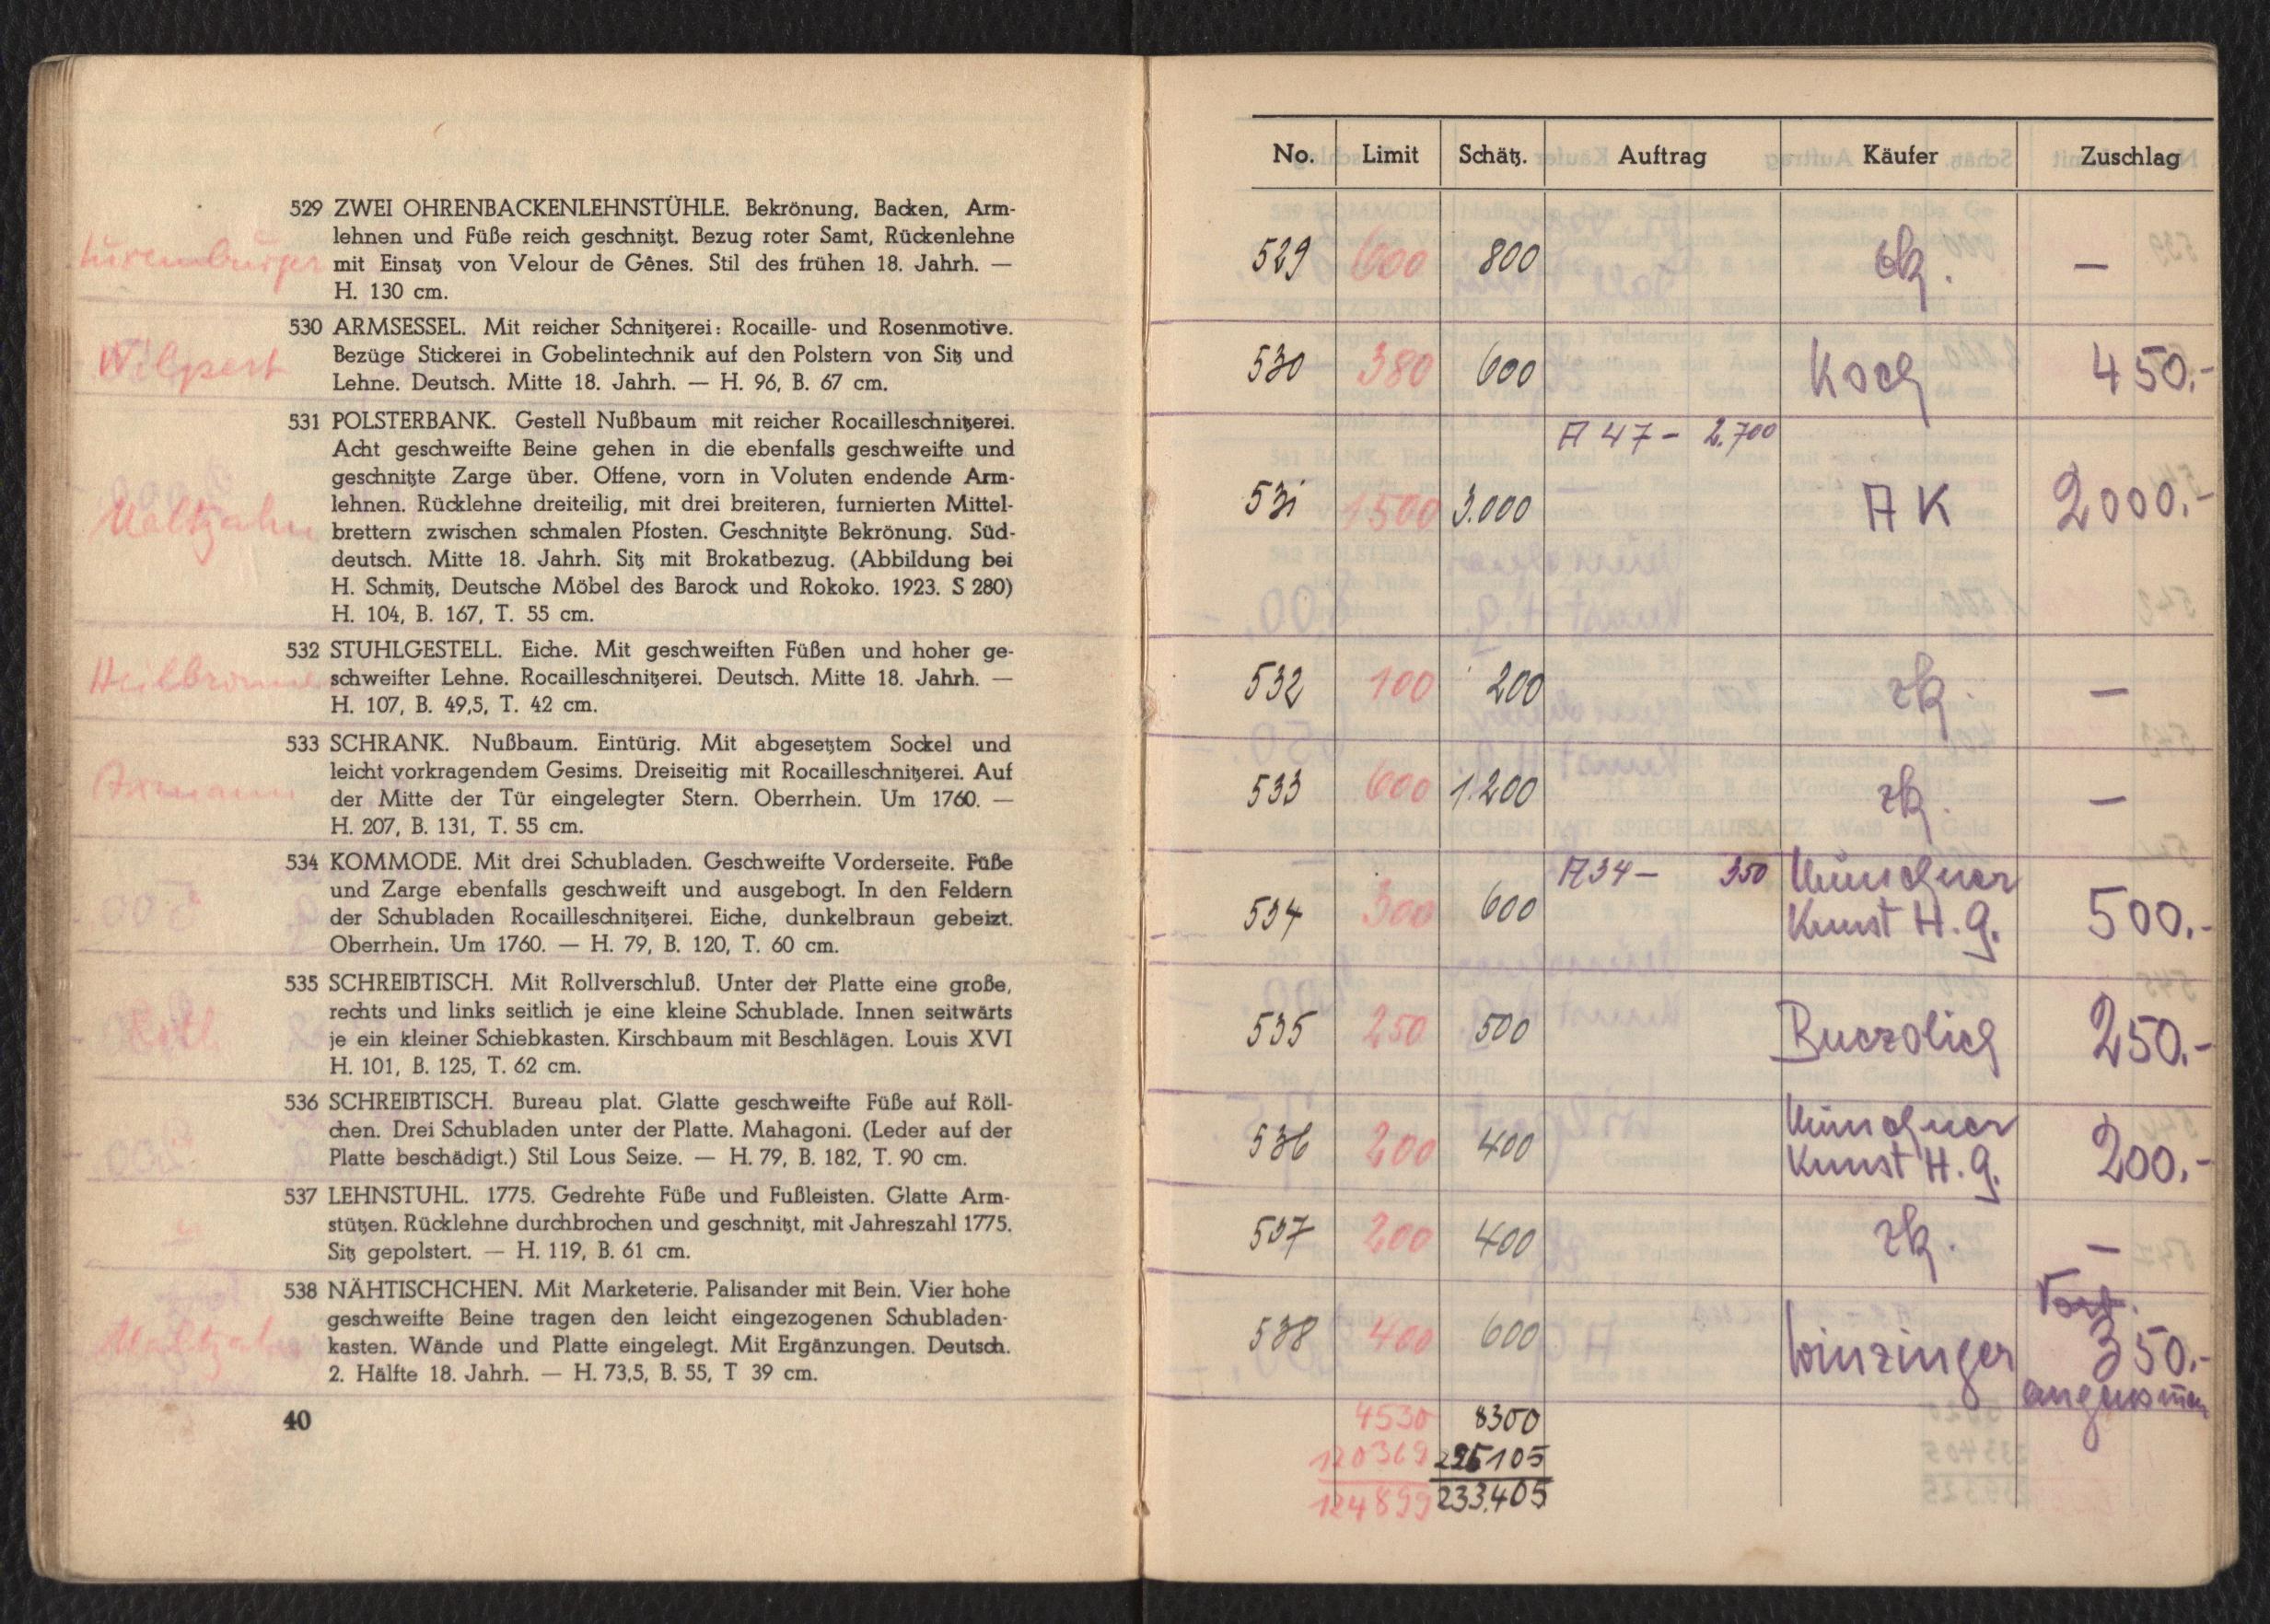 529 ZWEI OHRENBACKENLEHNSTÜHLE. Bekrönung, Backen, Arm-
lehnen und Füße reich geschnitzt. Bezug roter Samt, Rückenlehne
mit Einsatz von Velour de Gênes. Stil des frühen 18. Jahrh. —
H. 130 cm.
Luxemburger
530 ARMSESSEL. Mit reicher Schnitzerei: Rocaille- und Rosenmotive.
Bezüge Stickerei in Gobelintechnik auf den Polstern von Sitz und
Lehne. Deutsch. Mitte 18. Jahrh. — H. 96, B. 67 cm.
Wilpert
531 POLSTERBANK. Gestell Nußbaum mit reicher Rocailleschnitzerei.
Acht geschweifte Beine gehen in die ebenfalls geschweifte und
geschnitzte Zarge über. Offene, vorn in Voluten endende Arm-
lehnen. Rücklehne dreiteilig, mit drei breiteren, furnierten Mittel-
brettern zwischen schmalen Pfosten. Geschnitzte Bekrönung. Süd-
deutsch. Mitte 18. Jahrh. Sitz mit Brokatbezug. (Abbildung bei
H. Schmitz, Deutsche Möbel des Barock und Rokoko. 1923. S 280)
H. 104, B. 167, T. 55 cm.
Maltzahn
532 STUHLGESTELL. Eiche. Mit geschweiften Füßen und hoher ge-
schweifter Lehne. Rocailleschnitzerei. Deutsch. Mitte 18. Jahrh. —
H. 107, B. 49,5, T. 42 cm.
Heilbronner
533 SCHRANK. Nußbaum. Eintürig. Mit abgesetztem Sockel und
leicht vorkragendem Gesims. Dreiseitig mit Rocailleschnitzerei. Auf
der Mitte der Tür eingelegter Stern. Oberrhein. Um 1760. —
H. 207, B. 131, T. 55 cm.
Axmann
534 KOMMODE. Mit drei Schubladen. Geschweifte Vorderseite. Füße
und Zarge ebenfalls geschweift und ausgebogt. In den Feldern
der Schubladen Rocailleschnitzerei. Eiche, dunkelbraun gebeizt.
Oberrhein. Um 1760. — H. 79, B. 120, T. 60 cm.
535 SCHREIBTISCH. Mit Rollverschluß. Unter der Platte eine große,
rechts und links seitlich je eine kleine Schublade. Innen seitwärts
je ein kleiner Schiebkasten. Kirschbaum mit Beschlägen. Louis XVI
H. 101, B. 125, T. 62 cm.
536 SCHREIBTISCH. Bureau plat. Glatte geschweifte Füße auf Röll-
chen. Drei Schubladen unter der Platte. Mahagoni. (Leder auf der
Platte beschädigt.) Stil Lous Seize. — H. 79, B. 182, T. 90 cm.
537 LEHNSTUHL. 1775. Gedrehte Füße und Fußleisten. Glatte Arm-
stützen. Rücklehne durchbrochen und geschnitzt, mit Jahreszahl 1775.
Sitz gepolstert. — H. 119, B. 61 cm.
538 NÄHTISCHCHEN. Mit Marketerie. Palisander mit Bein. Vier hohe
geschweifte Beine tragen den leicht eingezogenen Schubladen-
kasten. Wände und Platte eingelegt. Mit Ergänzungen. Deutsch.
2. Hälfte 18. Jahrh. — H. 73,5, B. 55, T 39 cm.
Maltzahn
40
No. Limit Schätz. Auftrag Käufer Zuschlag
529 600 800 zk. —
530 380 600 Koch 450.-
A 47 - 2.700
531 1500 3.000 AK 2000.-
532 100 200 zk. —
533 600 1.200 zk. —
A 34 - 350 Münchner
534 300 600 Kunst H. g. 500.-
535 250 500 Buczolich 250.-
Münchner
536 200 400 Kunst H. g. 200.-
537 200 400 zk. —
538 400 600 Winzinger 350.-
angenomen
4530 8300
120369 225105
124899 233.405